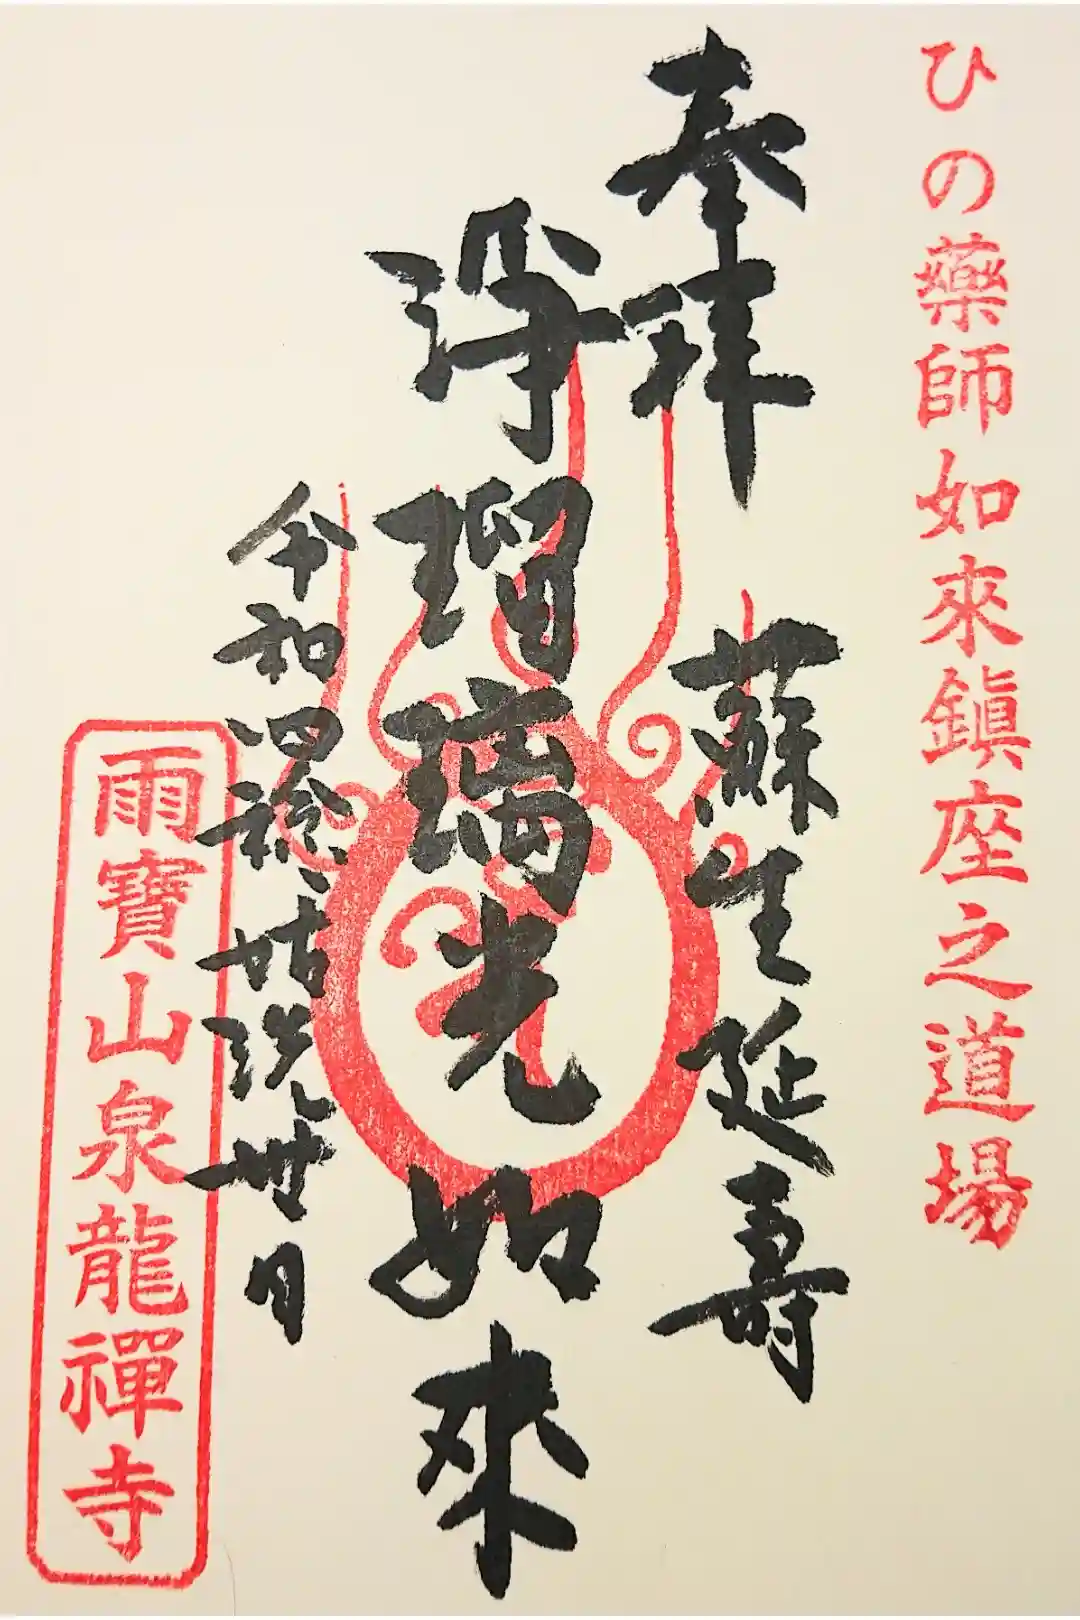 ひの藥師如來鎮座之道場
奉拜
蘇生延壽
淨瑠璃光如來
令和四禩、姑洗丗日
雨寶山泉龍禪寺